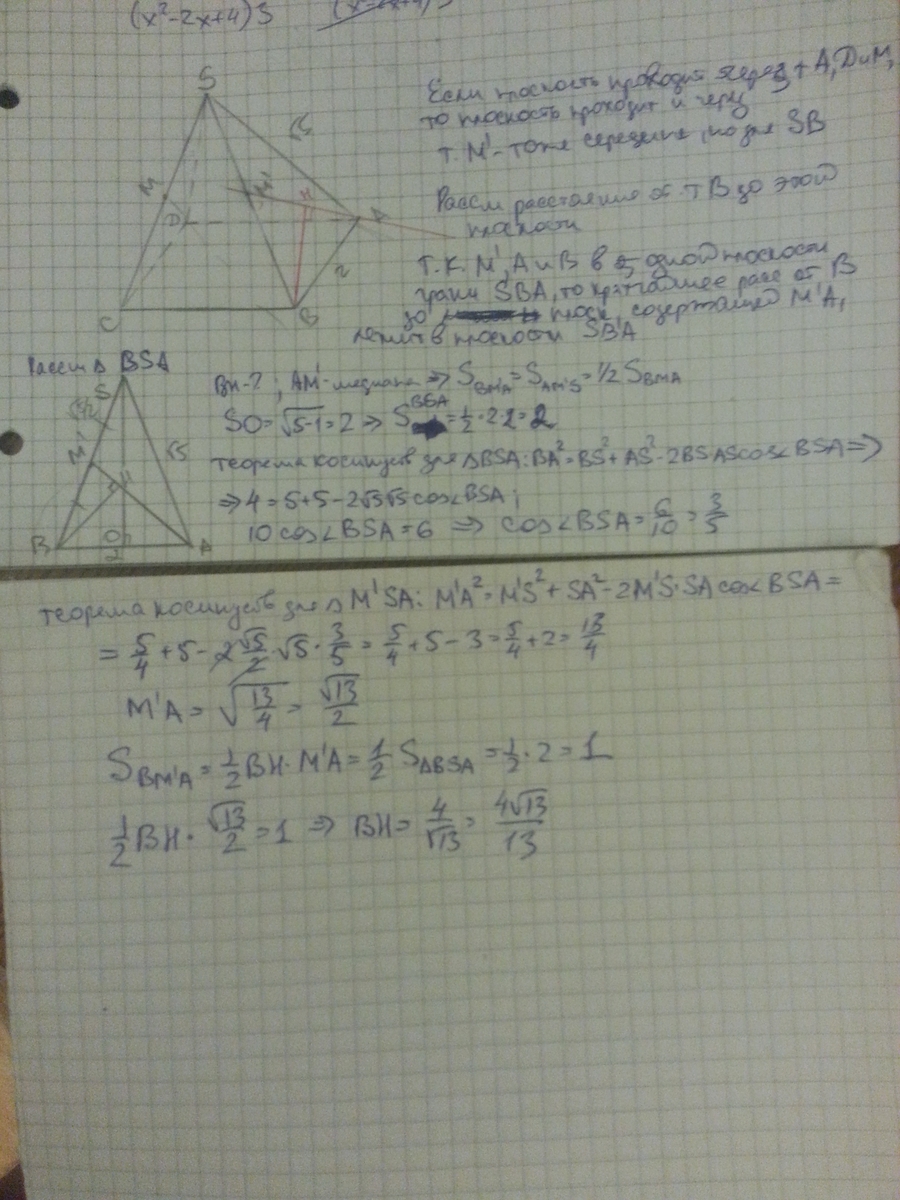 (x²-2x+4)3
S
√5
M
M'
H
D
A
2
C
B
Если плоскость проходит через т A, D и M,
то плоскость проходит и через
т. M' - тоже середина, но для SB
Рассм расстояние от т B до этой
плоскости
Т.к. M', A и B в одной плоскости
грани SBA, то кратчайшее расс от B
до плоск, содержащей M'A,
лежит в плоскости SBA
Рассм Δ BSA
S
√5/2
M'
√5
H
B
O
2
A
BH-? ; AM'-медиана => S_BM'A = S_AM'S = 1/2 S_BMA
SO = √5-1 = 2 => S_BSA = 1/2 · 2 · 2 = 2
теорема косинусов для ΔBSA: BA² = BS² + AS² - 2BS·AS cos∠BSA =>
=> 4 = 5+5-2√5√5 cos∠BSA;
10 cos∠BSA = 6 => cos∠BSA = 6/10 = 3/5
теорема косинусов для Δ M'SA: M'A² = M'S² + SA² - 2M'S·SA cos∠BSA =
= 5/4 + 5 - 2 √5/2 · √5 · 3/5 = 5/4 + 5 - 3 = 5/4 + 2 = 13/4
M'A = √13/4 = √13/2
S_BM'A = 1/2 BH · M'A = 1/2 S_ΔBSA = 1/2 · 2 = 1
1/2 BH · √13/2 = 1 => BH = 4/√13 = 4√13/13